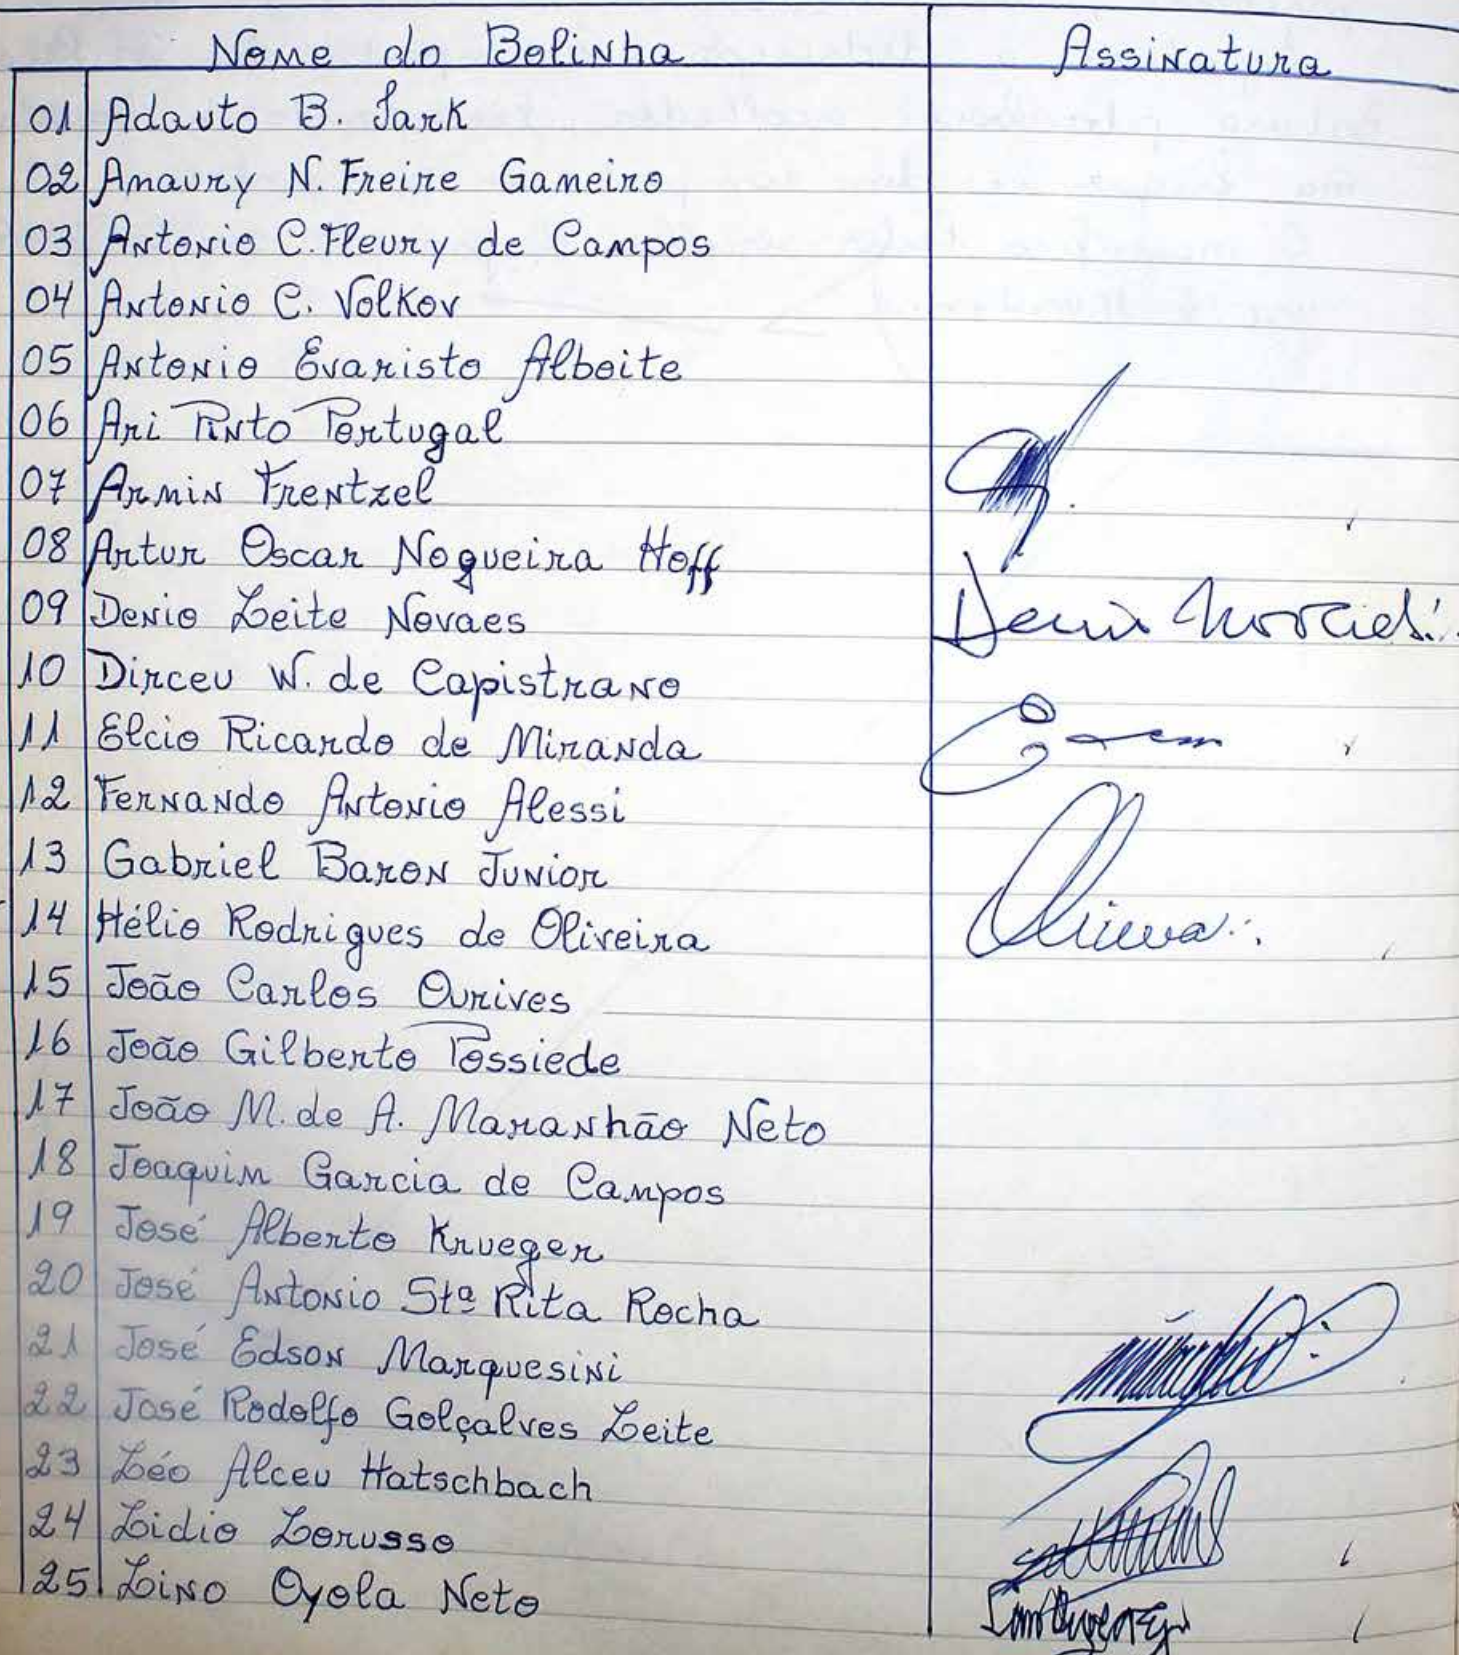 Nome do Bolinha Assinatura
01 Adauto B. Sark
02 Amaury N. Freire Gameiro
03 Antonio C. Fleury de Campos
04 Antonio C. Volkov
05 Antonio Evaristo Alboite
06 Ari Pinto Portugal
07 Armin Frentzel
08 Artur Oscar Nogueira Hoff
09 Denio Leite Novaes
10 Dirceu W. de Capistrano
11 Elcio Ricardo de Miranda
12 Fernando Antonio Alessi
13 Gabriel Baron Junior
14 Hélio Rodrigues de Oliveira
15 João Carlos Ourives
16 João Gilberto Possiede
17 João M. de A. Maranhão Neto
18 Joaquim Garcia de Campos
19 José Alberto Krueger
20 José Antonio Stª Rita Rocha
21 José Edson Marquesini
22 José Rodolfo Golçalves Leite
23 Léo Alceu Hatschbach
24 Lidio Lorusso
25 Lino Oyola Neto